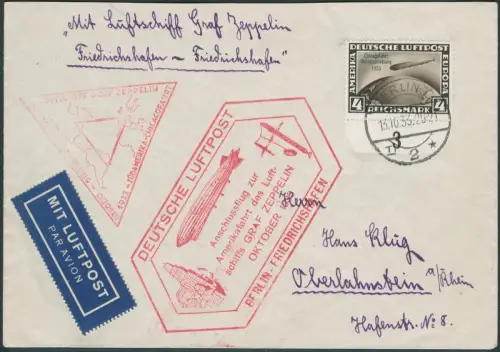 "Mit Luftschiff Graf Zeppelin
Friedrichshafen – Friedrichshafen"
DEUTSCHE LUFTPOST
AMERIKA
EUROPA
Chicagofahrt
Weltausstellung
1933
4
REICHSMARK
4
BERLIN
13.10.33.20-21
3
2
GRAF ZEPPELIN
1933
DEUTSCHE LUFTPOST
Anschlussflug zur
Amerikafahrt des Luft-
schiffs GRAF ZEPPELIN
OKTOBER
BERLIN-FRIEDRICHSHAFEN
MIT LUFTPOST
PAR AVION
Herrn
Hans Klug
Oberlahnstein a/Rhein
Hafenstr. No 8.